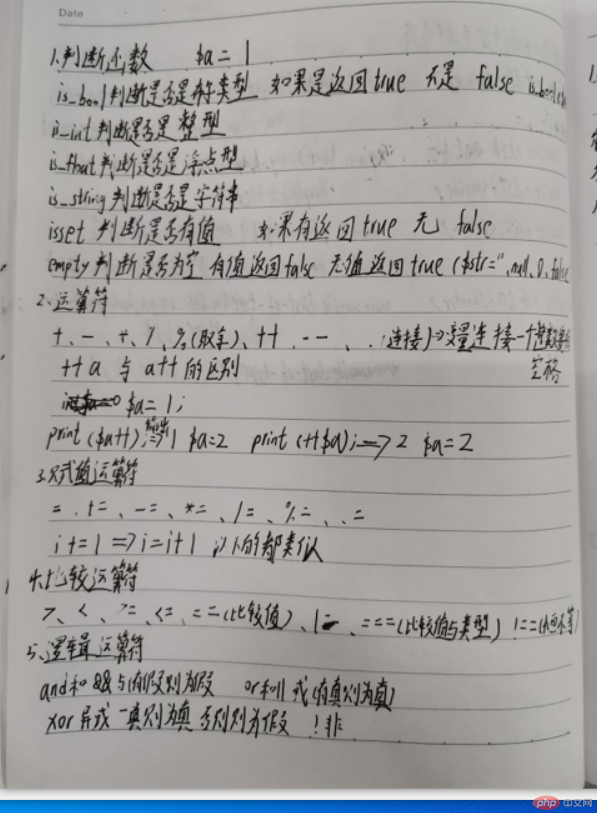 Date
1.判断函数 $a = 1
is_bool判断是否是布尔类型 如果是返回true 不是 false is_bool
is_int判断是否是 整型
is_float判断是否是浮点型
is_string判断是否是字符串
isset 判断是否有值 如果有返回true 无 false
empty判断是否为空 有值返回false 无值返回true ($str='',null、0、false
2.运算符
+、-、*、/、%(取余)、++ -- 、.(连接)→变量连接一个整数要
空格
++a 与 a++的区别
$a = 1;
print($a++); => 1 $a=2 print(++$a); => 2 $a=2
3.赋值运算符
= 、+= 、-= 、*= 、/= 、%= 、.=
i += 1 => i = i+1 以下的都类似
4.比较运算符
>、<、>=、<=、==(比较值)、!= 、===(比较值与类型) !==
5、逻辑运算符
and和 && 与(有假则为假 or和|| 或(有真则为真)
xor 异或 一真则为真 否则则为假 !非
php 中文网